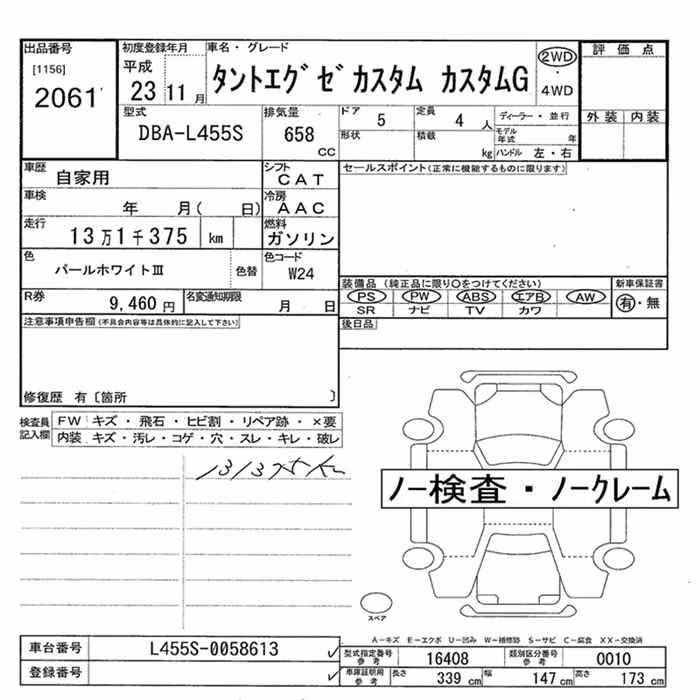 出品番号 初度登録年月 車名・グレード 評価点
[1156] 平成 タントエグゼカスタム カスタムG 2WD
2061 23 11 月 ・ 4WD
型式 排気量 ドア 5 定員 4 人 ディーラー・並行 外装 内装
DBA-L455S 658 cc 形状 積載 kg モデル年式 年
ハンドル 左・右
車歴 自家用 シフト CAT セールスポイント(正常に機能するものに限ります)
車検 年 月( 日) 冷房 AAC
走行 13万1千375 km 燃料 ガソリン
色 パールホワイトⅢ 色替 色コード W24
装備品(純正品に限り○をつけてください) 新車保証書
R券 9,460 円 名変通知期限 月 日 PS PW ABS エアB AW 有・無
SR ナビ TV カワ
注意事項申告欄(不具合内容等は具体的に記入して下さい) 後日品
修復歴 有〔箇所 〕
検査員記入欄 FW キズ・飛石・ヒビ割・リペア跡・×要
内装 キズ・汚レ・コゲ・穴・スレ・キレ・破レ
131375km
ノー検査・ノークレーム
スペア
A-キズ E-エクボ U-凹み W-補修跡 S-サビ C-腐食 XX-交換済
車台番号 L455S-0058613 型式指定番号 参考 16408 類別区分番号 参考 0010
登録番号 車庫証明用 参考 長さ 339 cm 幅 147 cm 高さ 173 cm